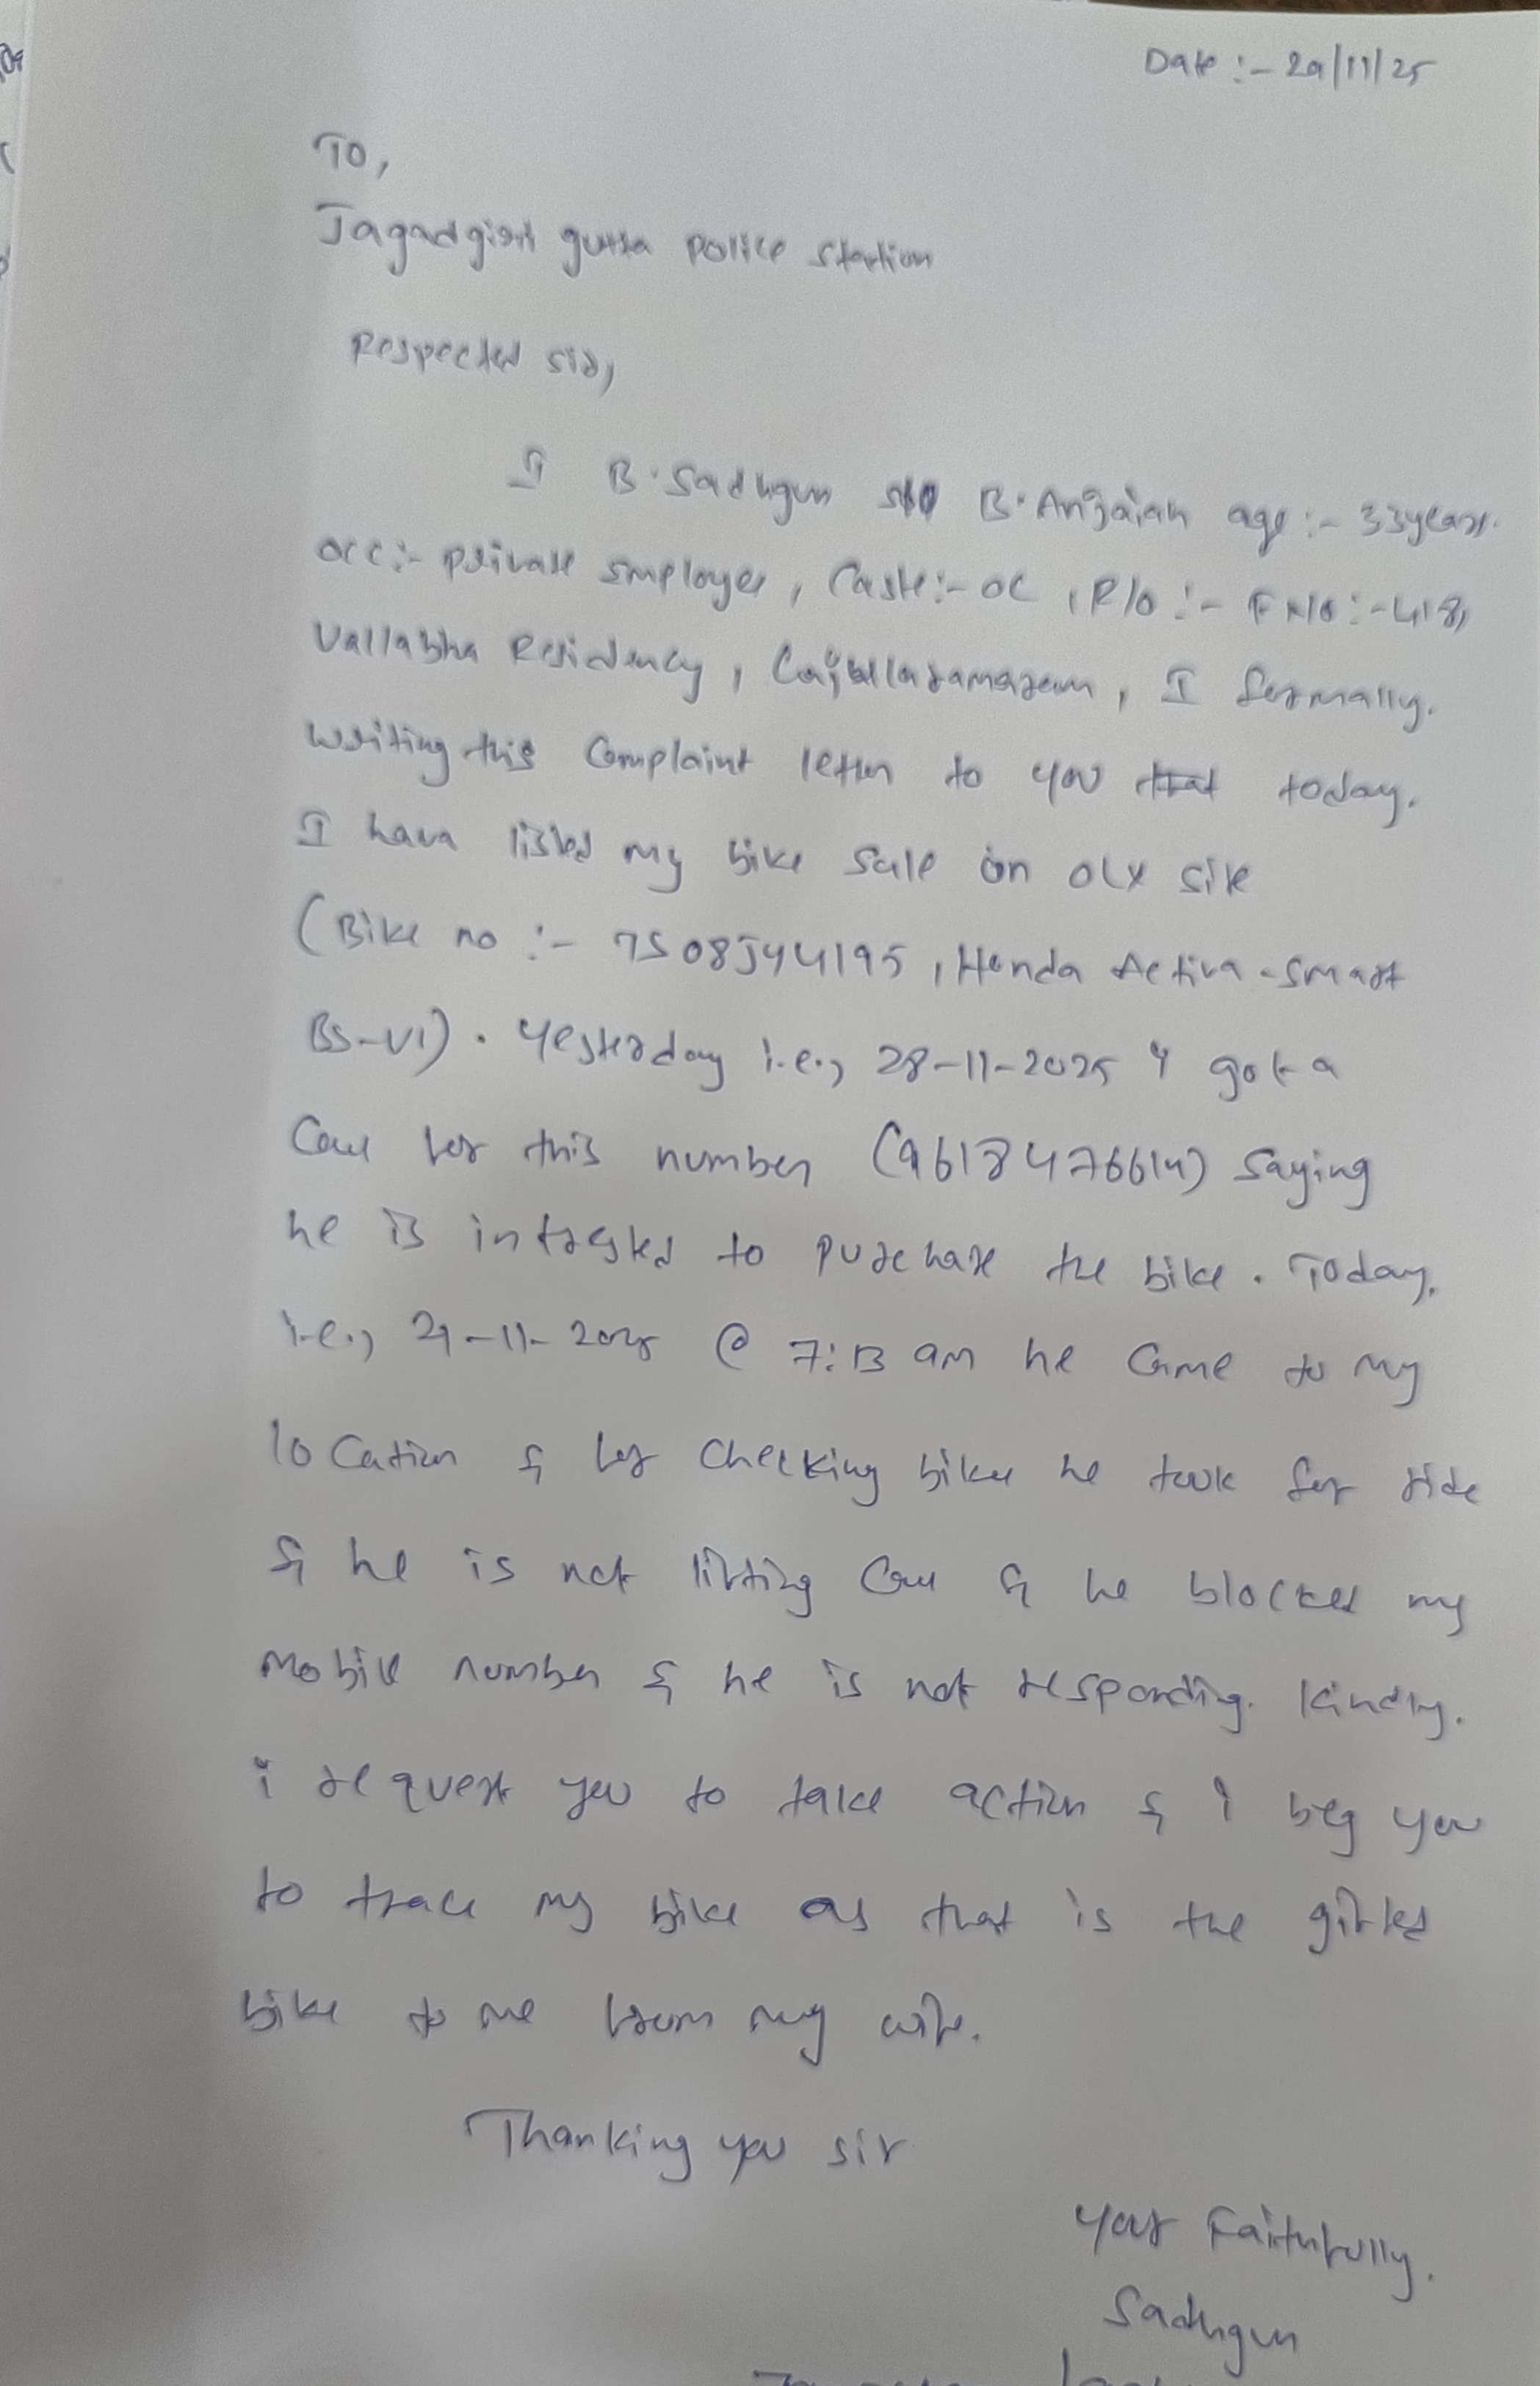 Date :- 29/11/25
TO,
Jagadgiri gutta Police Station
Respected sir,
I B. Sadhgun s/o B. Anjaiah age :- 33years.
occ:- private Employee, Caste:- OC, R/o :- F No:- 418,
Vallabha Residency, I formally.
writing this Complaint letter to you that today.
I have listed my bike sale on OLX site
(Bike no :- TS08JY4195, Honda Activa - Smart
BS-VI). Yesterday i.e., 28-11-2025 I got a
Call for this number (9618476614) saying
he is intrested to purchase the bike. Today.
i.e., 29-11-2025 @ 7:13 am he Came to my
location & for checking bike he took for ride
& he is not lifting Call & he blocked my
mobile number & he is not responding. Kindly.
i request you to take action & i beg you
to trace my bike as that is the gifted
bike to me from my wife.
Thanking you sir
Your Faithfully.
Sadhgun